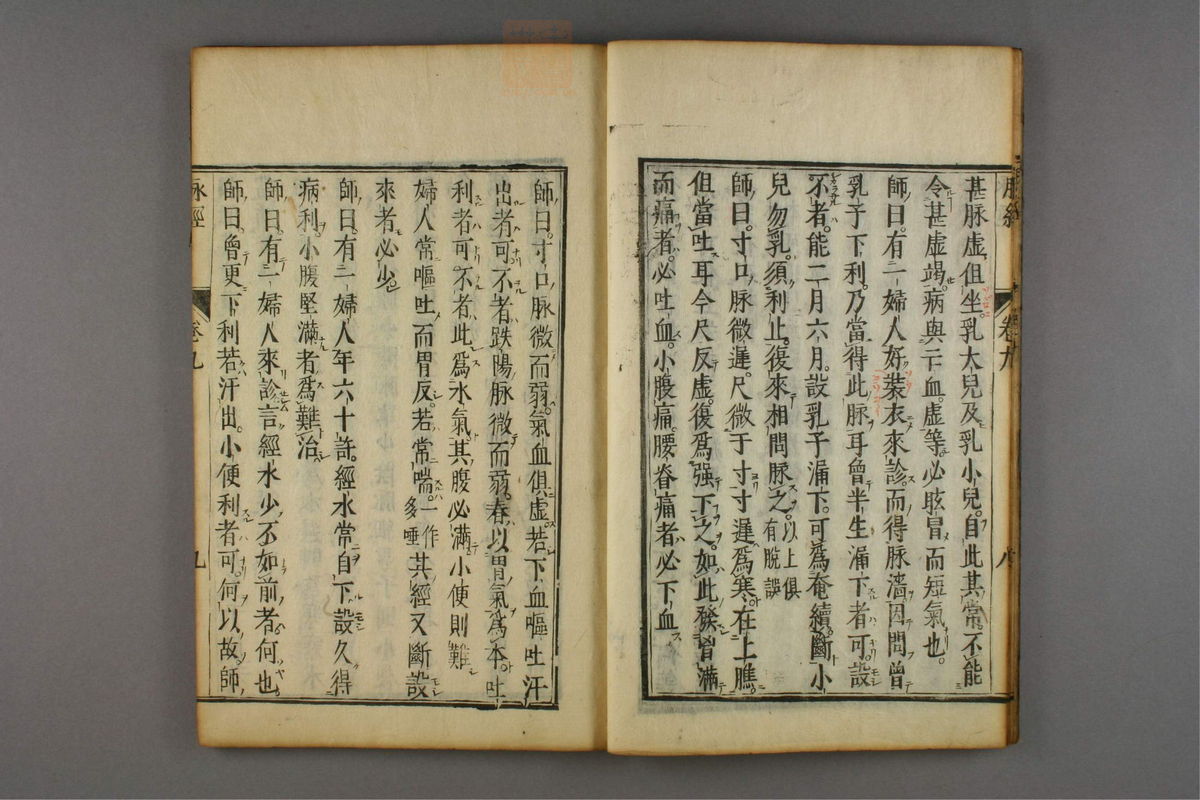 脉經
卷九
八
甚脉虛但坐乳大兒及乳小兒自此其常不能
令甚虛竭病與亡血虛等必眩冒而短氣也
師曰有一婦人好裝衣來診而得脉濇因問曾
乳子下利乃當得此脉耳曾半生漏下者可設
不者能二月六月設乳子漏下可爲奄續斷小
兒勿乳須利止復來相問脉之以上俱有脫誤
師曰寸口脉微遲尺微于寸寸遲爲寒在上膲
但當吐耳今尺反虛復爲强下之如此發胷滿
而痛者必吐血小腹痛腰脊痛者必下血
師曰寸口脉微而弱氣血俱虛若下血嘔吐汗
出者可不者趺陽脉微而弱春以胃氣爲本吐
利者可不者此爲水氣其腹必滿小便則難
婦人常嘔吐而胃反若常喘一作多唾其經又斷設
來者必少
師曰有一婦人年六十許經水常自下設久得
病利小腹堅滿者爲難治
師曰有一婦人來診言經水少不如前者何也
師曰曾更下利若汗出小便利者可何以故師
脉經
卷九
九